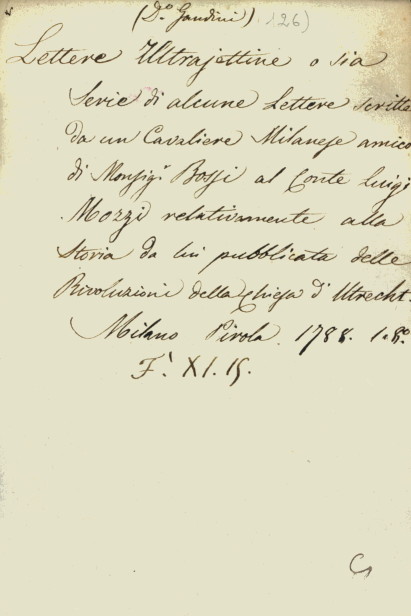 (D.º Gandini) 126)
Lettere Ultrajettine o sia
Serie di alcune Lettere scritte
da un Cavaliere Milanese amico
di Monsig.r Bossi al Conte Luigi
Mozzi relativamente alla
Storia da lui pubblicata delle
Rivoluzioni della Chiesa d'Utrecht.
Milano Pirola. 1788. 1. 8.º
F. XI. 15.